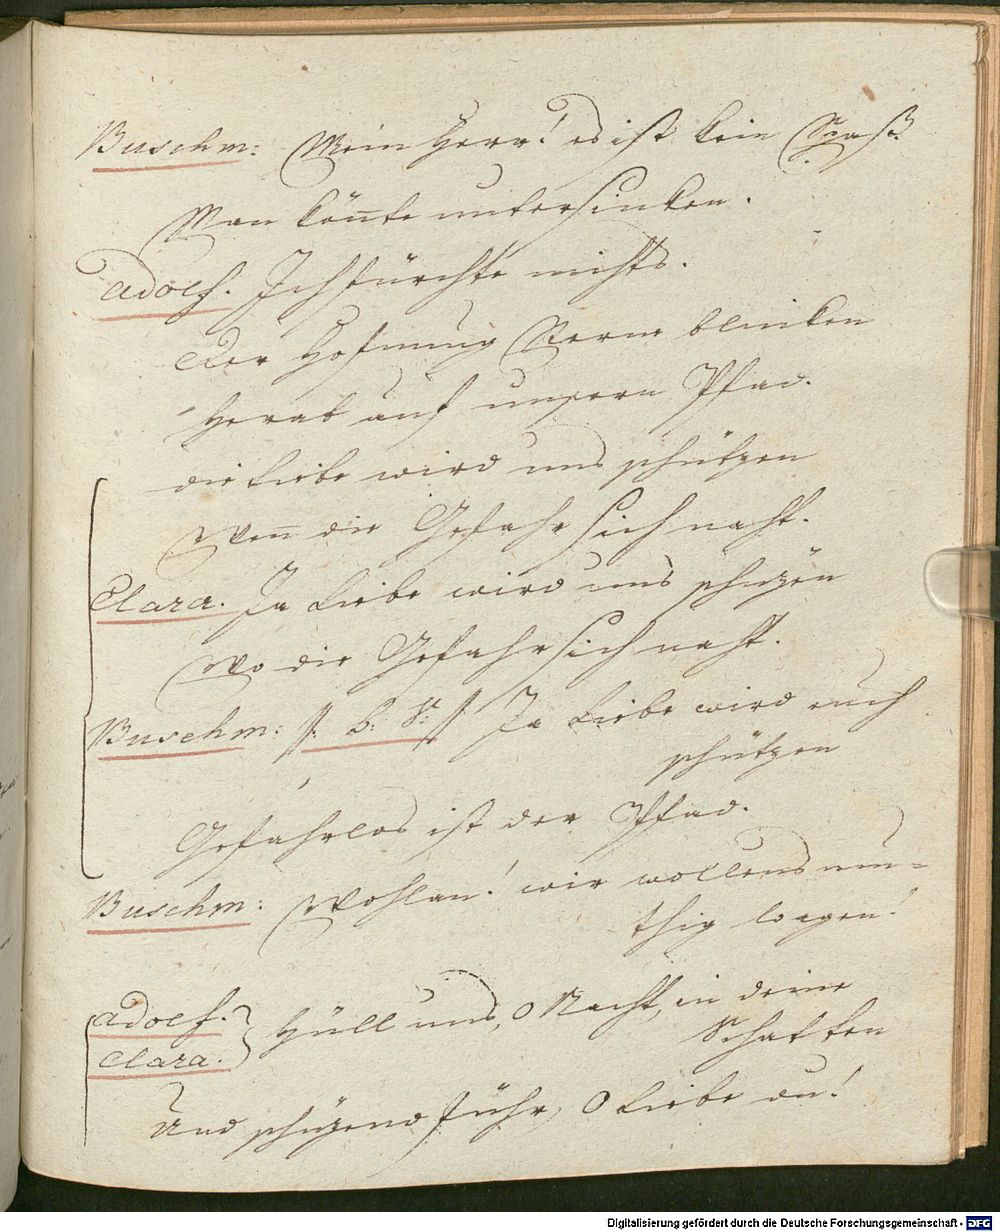 Buschm: Mein Herr! es ist kein Spaß
Man könnte untersinken.
Adolf. Ich fürchte nichts.
Der Hofnung Sterne blinken
Herab auf unsern Pfad.
die Liebe wird uns schützen
Wenn die Gefahr sich naht.
Clara. Ja Liebe wird uns schüzen
Wo die Gefahr sich naht.
Buschm: /: b: S: / Ja Liebe wird euch
schützen
Gefahrlos ist der Pfad.
Buschm: Wohlan! wir wollens mu-
thig wagen!
Adolf.
Clara. } Hüll uns, o Nacht, in deine
Schatten
Und schüzend führ, o Liebe du!
Digitalisierung gefördert durch die Deutsche Forschungsgemeinschaft - DFG